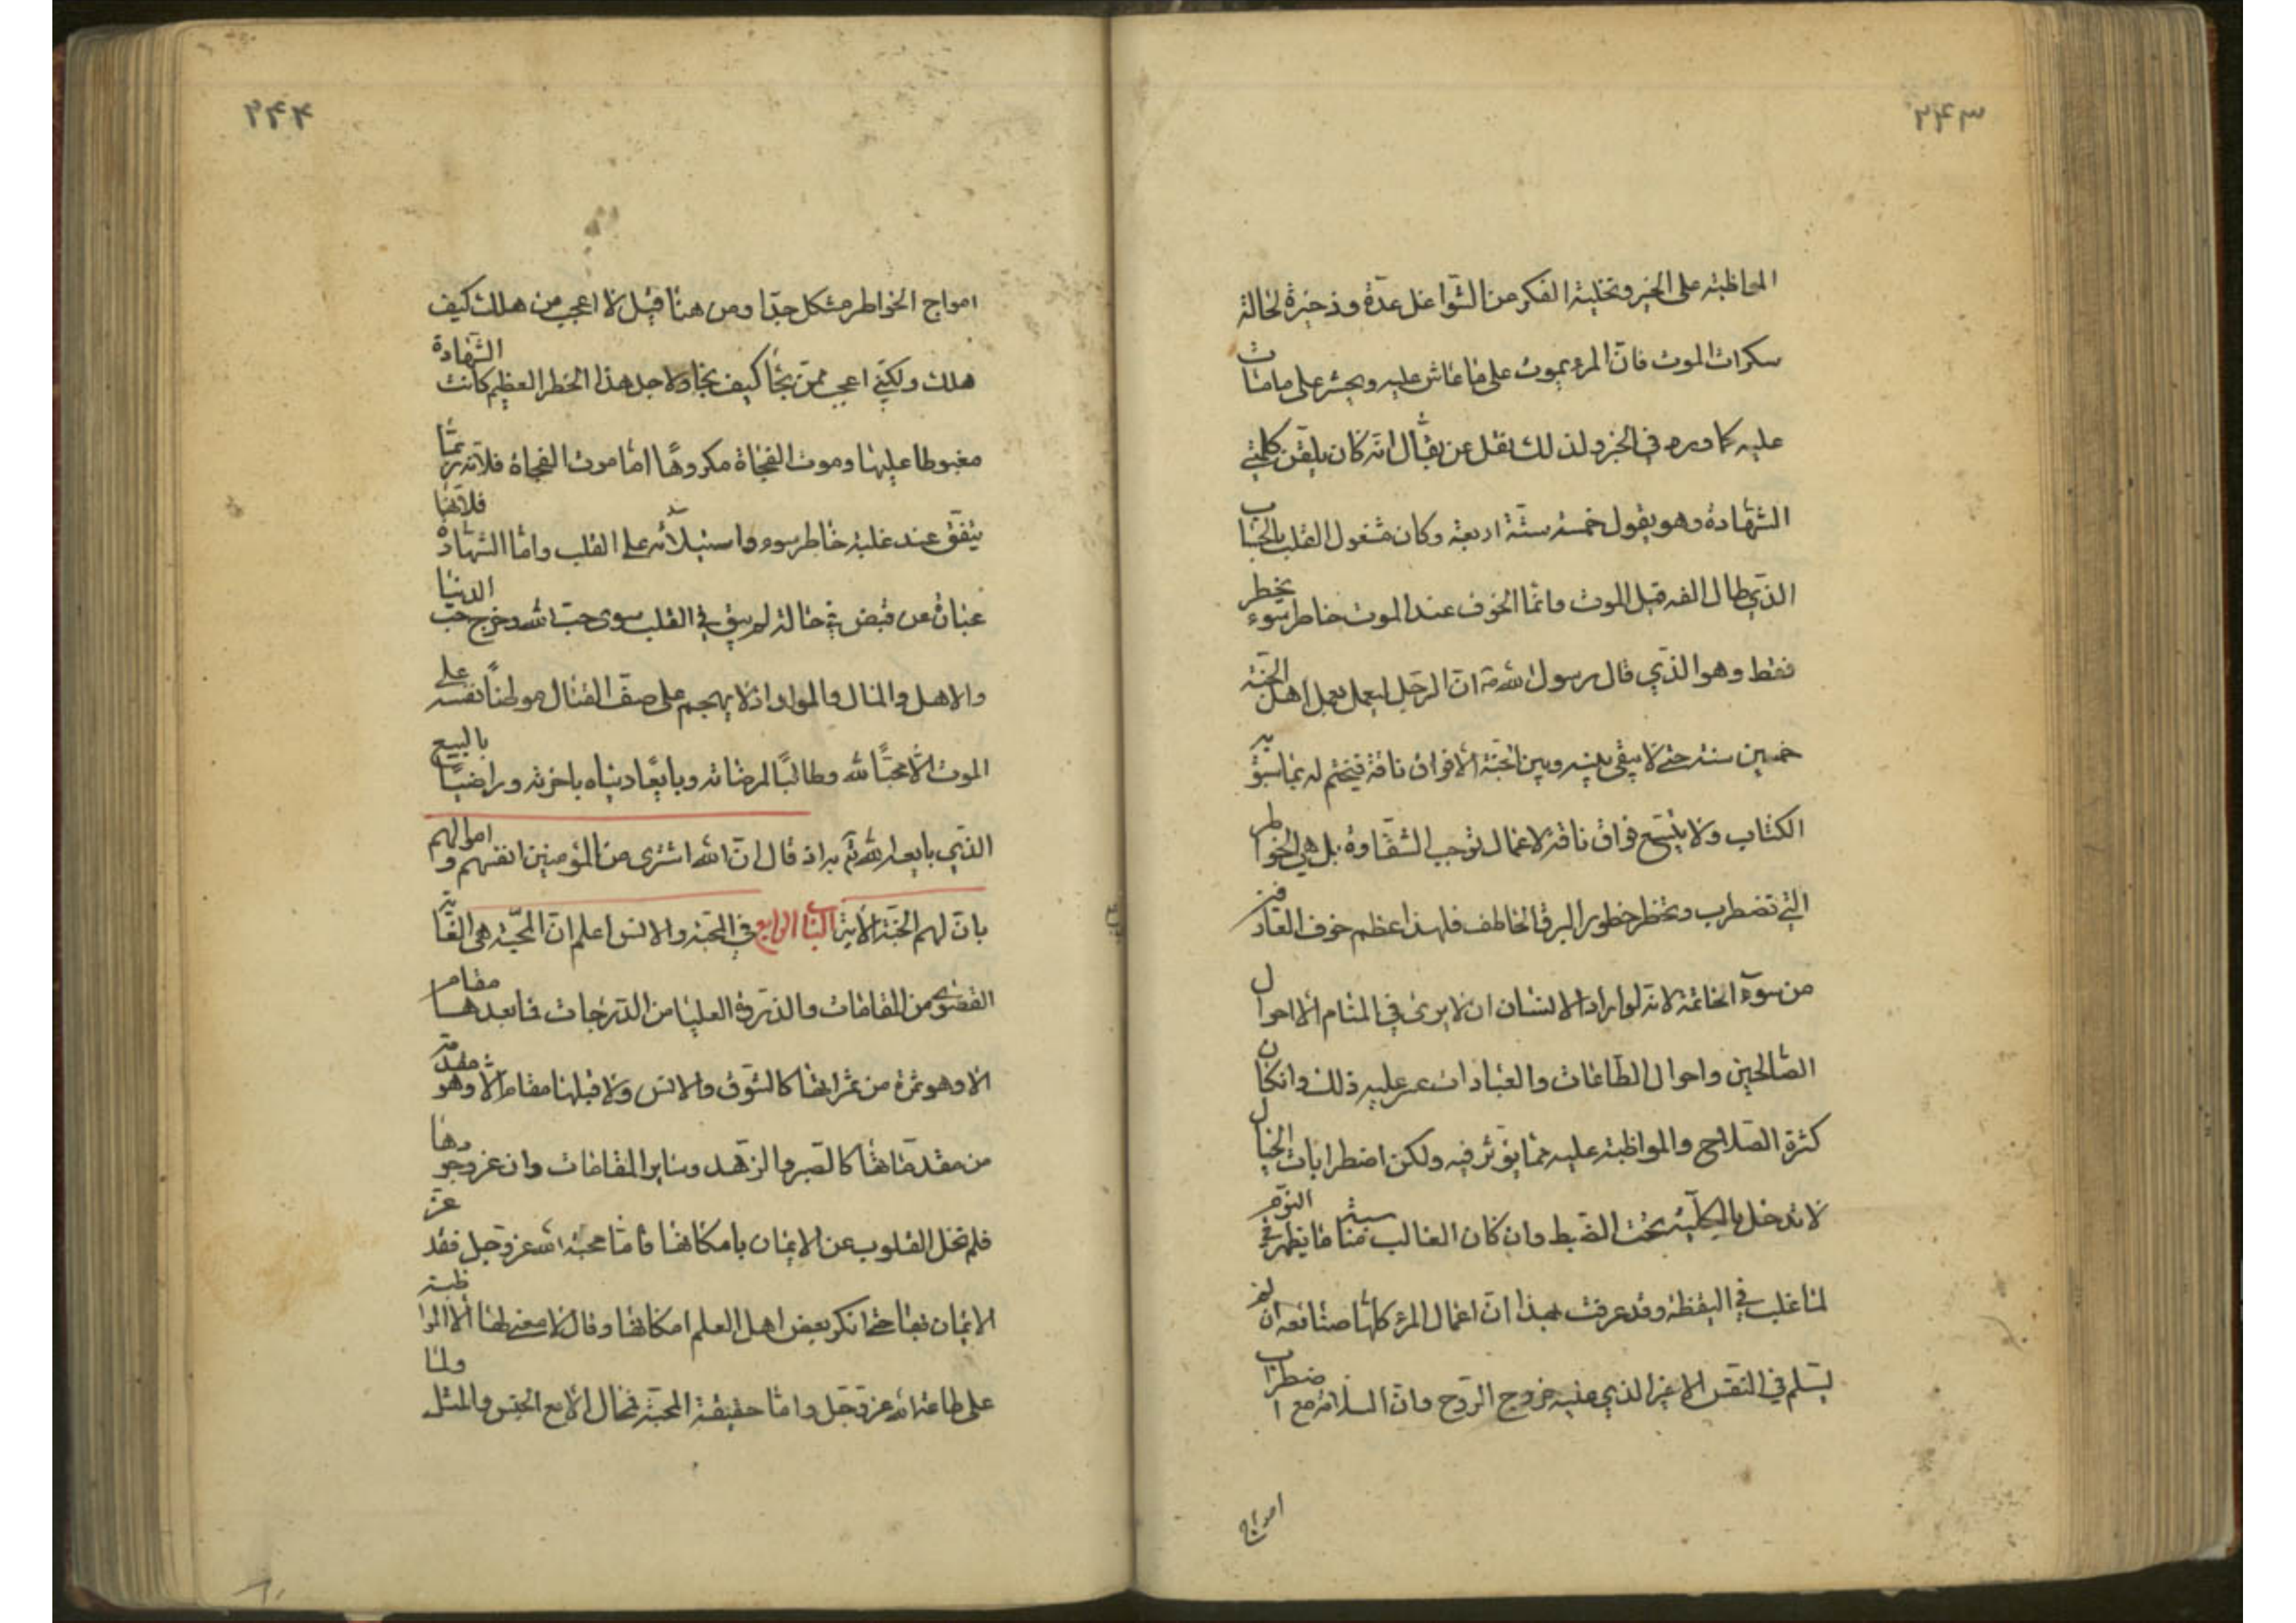 ۲۴۳
المواظبة على الخير وتخلية الفكر من الشواغل عدّة وذخيرة لحالة
سكرات الموت فانّ المرء يموت على ما عاش عليه ويحشر على ما مات
عليه كما ورد في الخبر ولذلك نقل عن بقّال انّه كان يلقّن كلمتي
الشهادة وهو يقول خمسة ستّة اربعة وكان مشغول القلب بالحساب
الذي طال الفه قبل الموت وانّما الخوف عند الموت خاطر سوء يخطر
فقط وهو الذي قال رسول الله ص انّ الرجل ليعمل بعمل اهل الجنّة
خمسين سنة حتى لا يبقى بينه وبين الجنّة الّا فواق ناقة فيختم له بما سبق به
الكتاب ولا يتّسع فواق ناقة لاعمال توجب الشقاوة بل هي الخواطر
التي تضطرب وتخطر خطور البرق الخاطف فلهذا عظم خوف العارفين
من سوء الخاتمة لانّه لو اراد الانسان ان لا يرى في المنام الّا احوال
الصالحين واحوال الطاعات والعبادات عسر عليه ذلك وان كان
كثرة الصلاح والمواظبة عليه ممّا يؤثر فيه ولكن اضطرابات الخيال
لا تدخل بالكلّية تحت الضبط وان كان الغالب مناسبة ما يظهر في النوم
لما غلب في اليقظة وقد عرفت بهذا انّ اعمال المرء كلّها ضائعة ان لم
يسلم في النفس الاخير الذي عليه خروج الروح وانّ السلامة مع اضطراب
امواج
۲۴۴
امواج الخواطر مشكل جدّا ومن هنا قيل لا اعجب من هلك كيف
هلك ولكنّي اعجب ممّن نجا كيف نجا ولاجل هذا الخطر العظيم كانت الشهادة
مغبوطا عليها وموت الفجاة مكروهًا امّا موت الفجاة فلانّه ربّما
يتّفق عند غلبة خاطر سوء واستيلائه على القلب وامّا الشهادة فلانّها
عبارة عن قبض في حالة لم يبق في القلب سوى حبّ الله وخرج حبّ الدنيا
والاهل والمال والمولد اذ لا يهجم على صفّ القتال موطنًا نفسه على
الموت الّا محبّا لله وطالبًا لمرضاته وبايعًا دنياه باخرته وراضيًا بالبيع
الذي بايعه الله تم به اذ قال انّ الله اشترى من المؤمنين انفسهم واموالهم
بانّ لهم الجنّة الآية الباب الرابع في المحبّة والانس اعلم انّ المحبّة هي الغاية
القصوى من المقامات والذروة العليا من الدرجات فما بعدها مقام
الا وهو ثمرة من ثمراتها كالشوق والانس ولا قبلها مقام الّا وهو مقدمة
من مقدماتها كالصبر والزهد وساير المقامات وان عز وجودها
فلم تخل القلوب عن الايمان بامكانها فامّا محبّة الله عزّ وجل فقد عزّ
الايمان بها حتى انكر بعض اهل العلم امكانها وقال لا معنى لها الّا المواظبة
على طاعة الله عزّ وجلّ وامّا حقيقة المحبّة فمحال الّا مع الجنس والمثل ولمّا